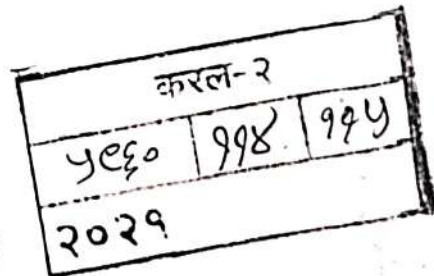 करल-२
५९६० ११४ ११५
२०२१